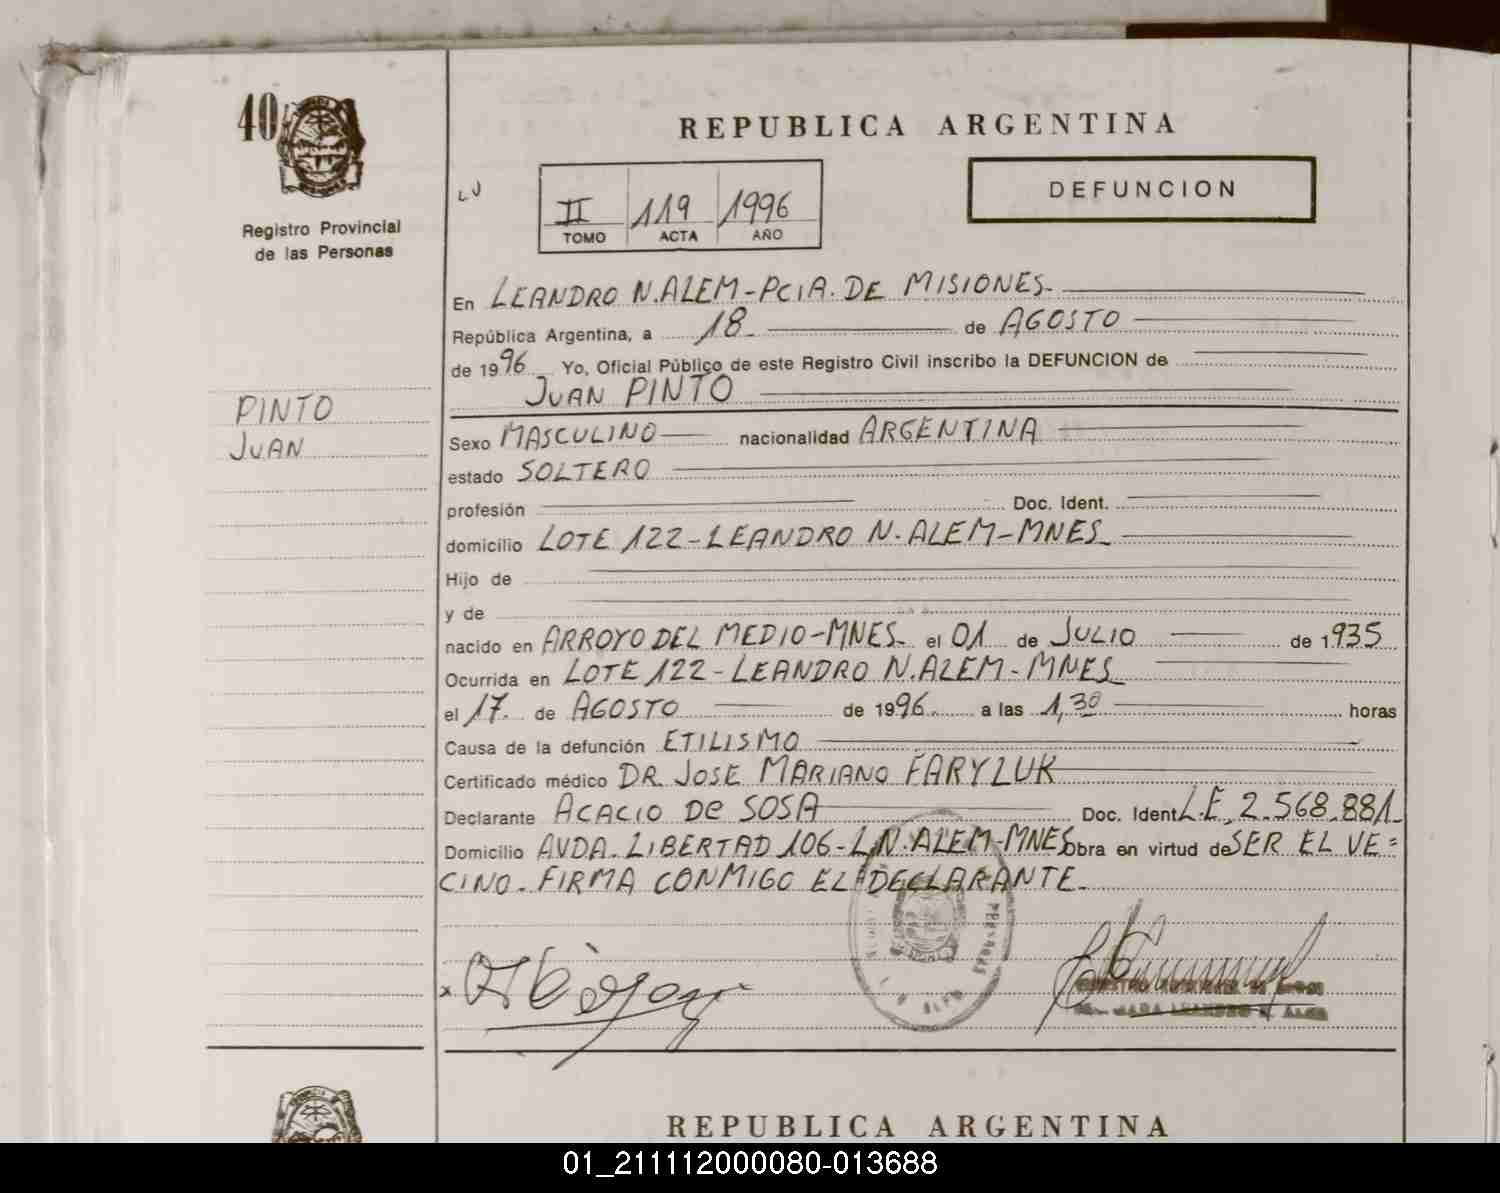 40
Registro Provincial
de las Personas
PINTO
JUAN
REPUBLICA ARGENTINA
II 119 1996
TOMO ACTA AÑO
DEFUNCION
En LEANDRO N. ALEM-PCIA. DE MISIONES.
República Argentina, a 18 de AGOSTO
de 1996 Yo, Oficial Público de este Registro Civil inscribo la DEFUNCION de
JUAN PINTO
Sexo MASCULINO nacionalidad ARGENTINA
estado SOLTERO
profesión Doc. Ident.
domicilio LOTE 122-LEANDRO N. ALEM-MNES
Hijo de
y de
nacido en ARROYO DEL MEDIO-MNES. el 01 de JULIO de 1935
Ocurrida en LOTE 122-LEANDRO N. ALEM-MNES
el 17. de AGOSTO de 1996. a las 1,30 horas
Causa de la defunción ETILISMO
Certificado médico DR. JOSE MARIANO FARYLUK
Declarante ACACIO De SOSA Doc. Ident L.E. 2.568.881.
Domicilio AVDA. LIBERTAD 106-L.N. ALEM-MNES obra en virtud de SER EL VE=
CINO. FIRMA CONMIGO EL DECLARANTE.
REPUBLICA ARGENTINA
01_211112000080-013688